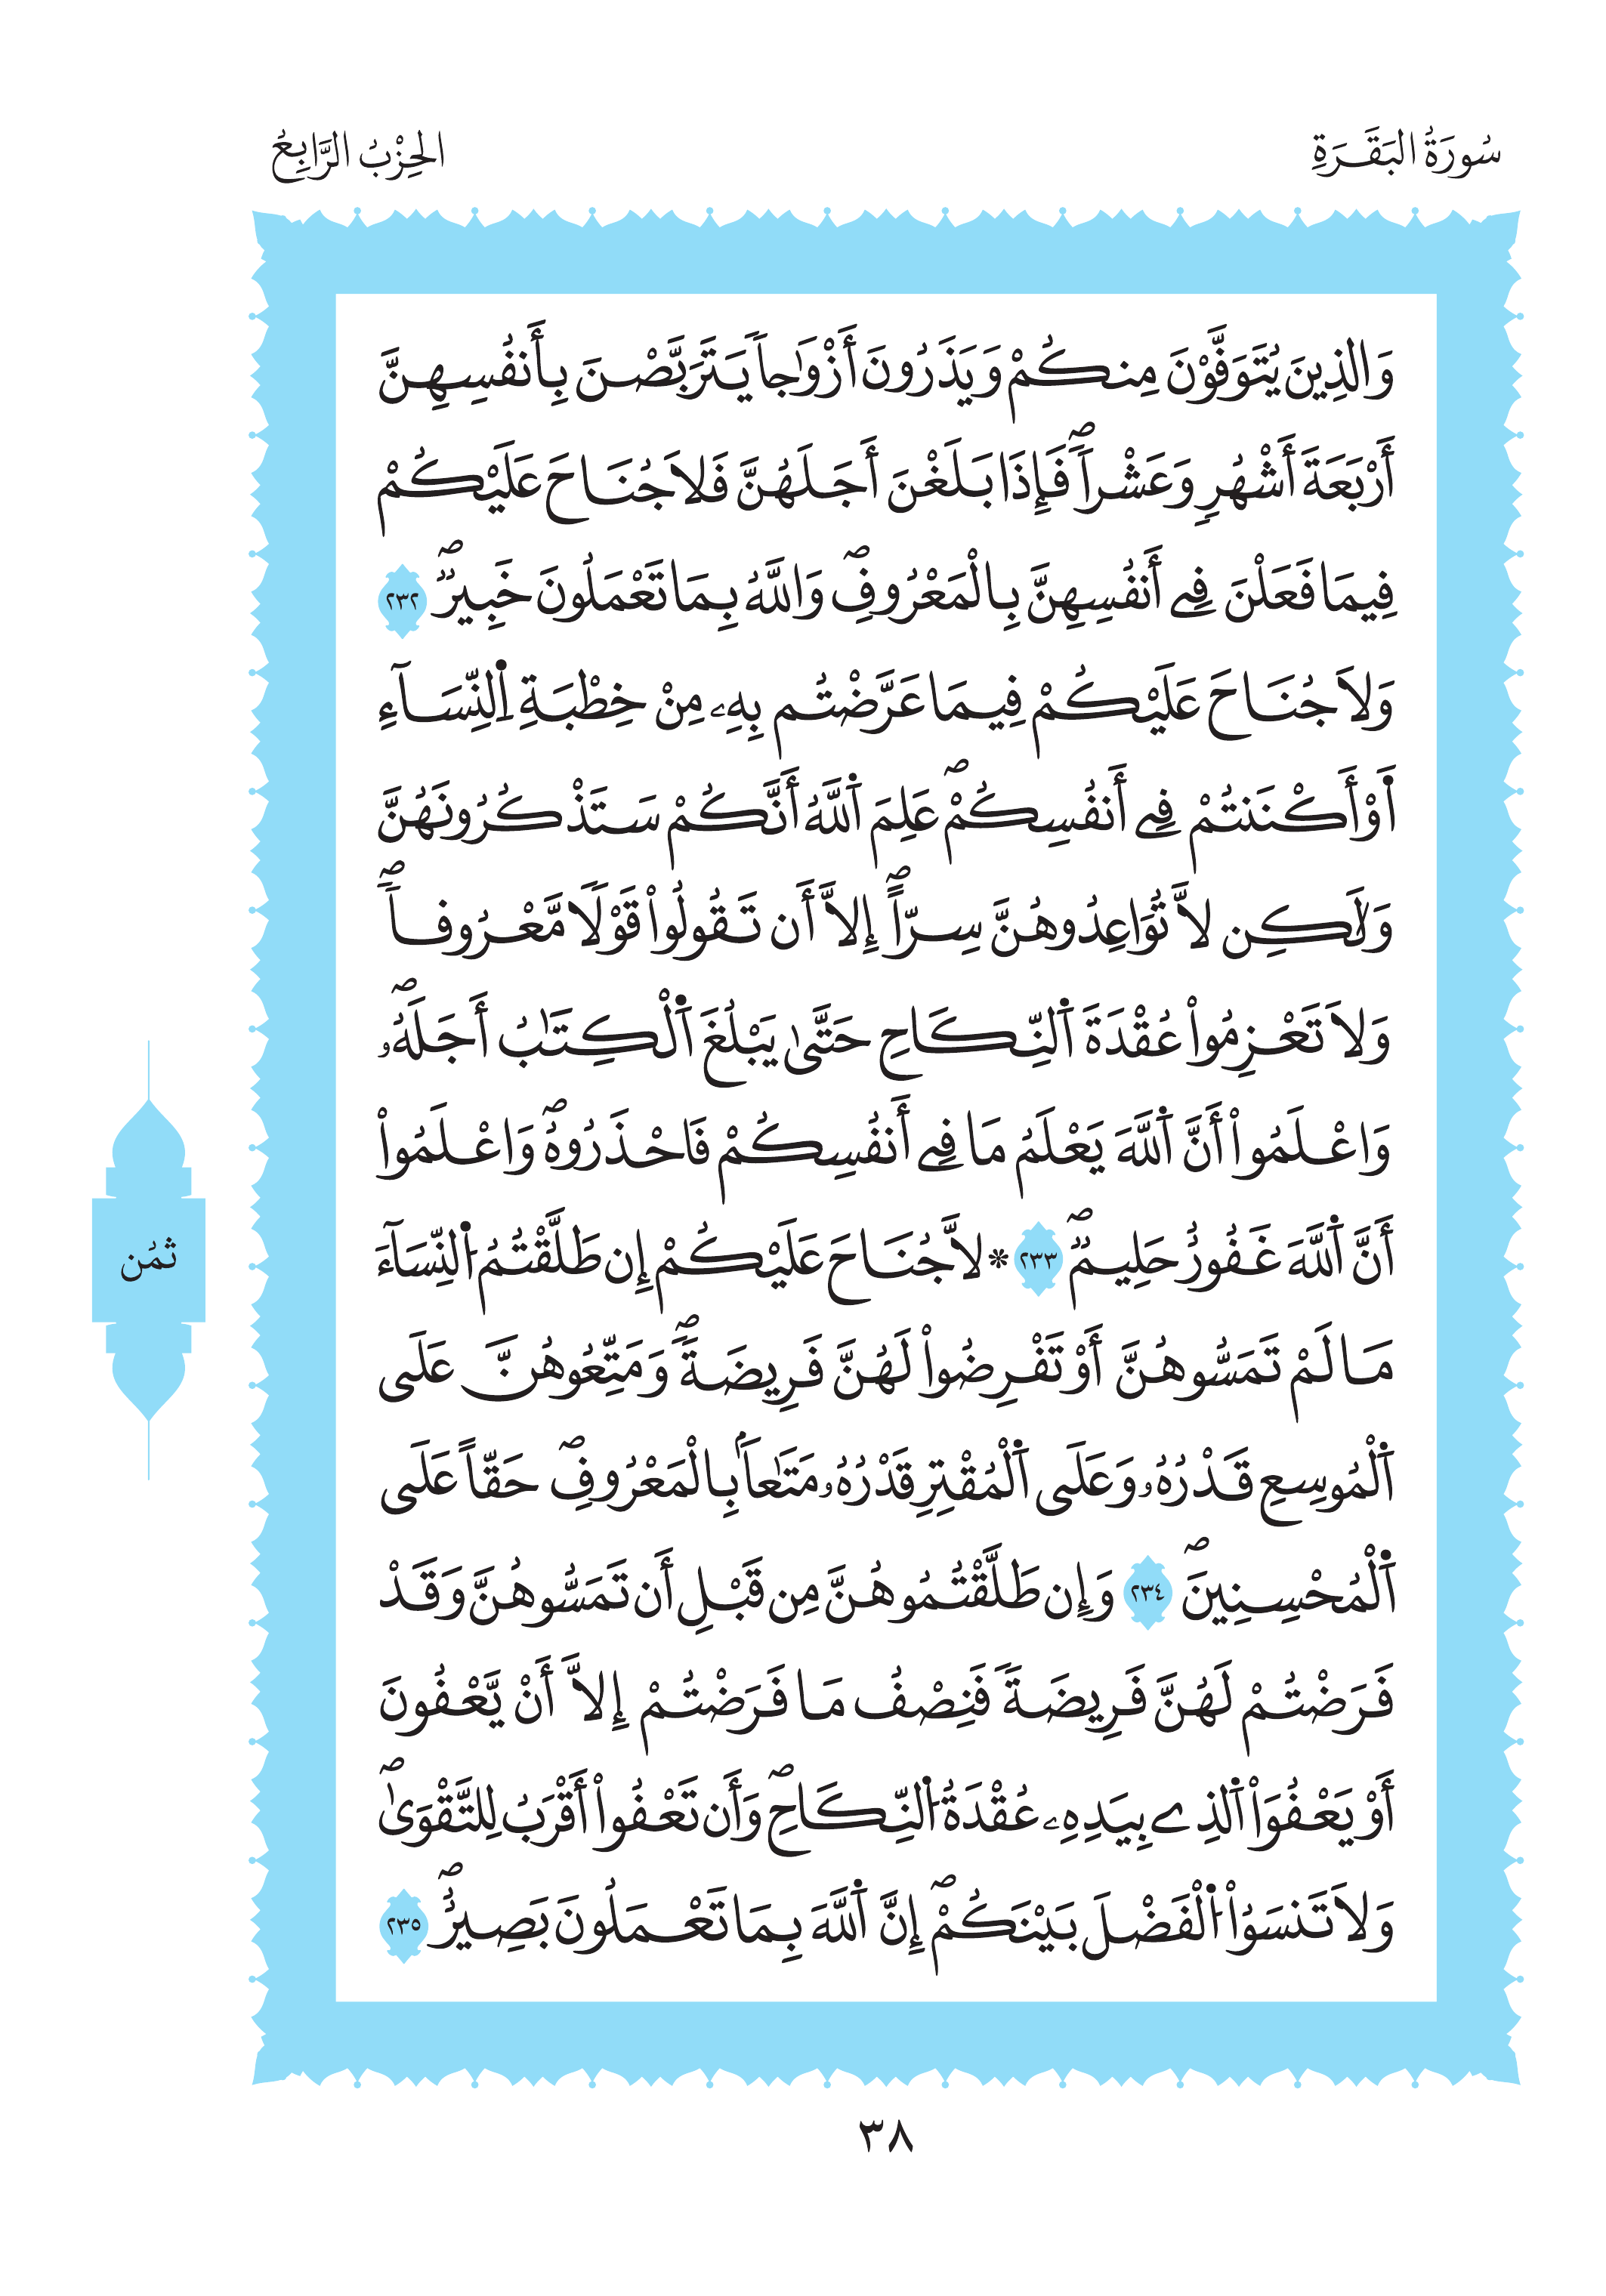 سُورَةُ البَقَرَةِ
الحِزْبُ الرَّابِعُ
وَالذِينَ يُتَوَفَّوْنَ مِنكُمْ وَيَذَرُونَ أَزْوَٰجاٗ يَتَرَبَّصْنَ بِأَنفُسِهِنَّ
أَرْبَعَةَ أَشْهُرٖ وَعَشْراٗۖ فَإِذَا بَلَغْنَ أَجَلَهُنَّ فَلاَ جُنَاحَ عَلَيْكُمْ
فِيمَا فَعَلْنَ فِے أَنفُسِهِنَّ بِالْمَعْرُوفِۖ وَاللَّهُ بِمَا تَعْمَلُونَ خَبِيرٞۖ ٢٣٢
وَلاَ جُنَاحَ عَلَيْكُمْ فِيمَا عَرَّضْتُم بِهِۦ مِنْ خِطْبَةِ اِ۬لنِّسَآءِ
اَ۬وْ أَكْنَنتُمْ فِے أَنفُسِكُمْۖ عَلِمَ اَ۬للَّهُ أَنَّكُمْ سَتَذْكُرُونَهُنَّ
وَلَٰكِن لاَّ تُوَاعِدُوهُنَّ سِرّاًۖ إِلاَّ أَن تَقُولُواْ قَوْلاٗ مَّعْرُوفاٗۖ
وَلاَ تَعْزِمُواْ عُقْدَةَ اَ۬لنِّكَاحِ حَتَّىٰ يَبْلُغَ اَ۬لْكِتَٰبُ أَجَلَهُۥۖ
وَاعْلَمُواْ أَنَّ اَ۬للَّهَ يَعْلَمُ مَا فِے أَنفُسِكُمْ فَاحْذَرُوهُۖ وَاعْلَمُواْ
أَنَّ اَ۬للَّهَ غَفُورٌ حَلِيمٞۖ ٢٣٣ * لاَّ جُنَاحَ عَلَيْكُمْ إِن طَلَّقْتُمُ اُ۬لنِّسَآءَ
مَا لَمْ تَمَسُّوهُنَّ أَوْ تَفْرِضُواْ لَهُنَّ فَرِيضَةٗۖ وَمَتِّعُوهُنَّ عَلَى
اَ۬لْمُوسِعِ قَدْرُهُۥ وَعَلَى اَ۬لْمُقْتِرِ قَدْرُهُۥ مَتَٰعاَۢ بِالْمَعْرُوفِۖ حَقّاً عَلَى
اَ۬لْمُحْسِنِينَۖ ٢٣٤ وَإِن طَلَّقْتُمُوهُنَّ مِن قَبْلِ أَن تَمَسُّوهُنَّ وَقَدْ
فَرَضْتُمْ لَهُنَّ فَرِيضَةٗ فَنِصْفُ مَا فَرَضْتُمْ إِلاَّ أَنْ يَّعْفُونَ
أَوْ يَعْفُوَاْ اَ۬لذِے بِيَدِهِۦ عُقْدَةُ اُ۬لنِّكَاحِۖ وَأَن تَعْفُواْ أَقْرَبُ لِلتَّقْوَىٰۖ
وَلاَ تَنسَوُاْ اُ۬لْفَضْلَ بَيْنَكُمْۖ إِنَّ اَ۬للَّهَ بِمَا تَعْمَلُونَ بَصِيرٌۖ ٢٣٥
ثُمُن
٣٨